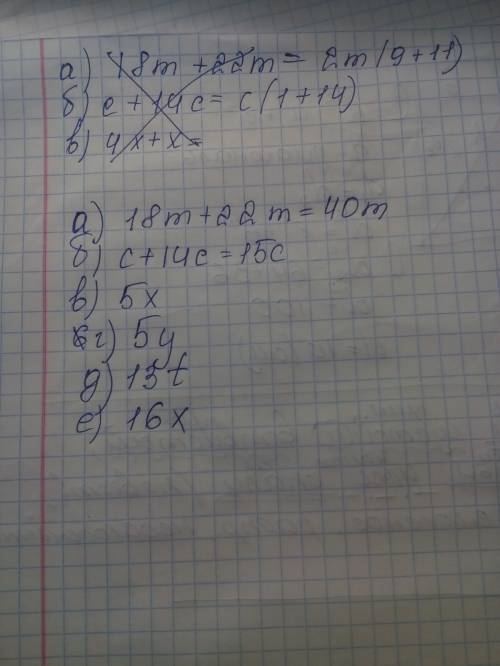 а) 18m + 22m = 2m(9+11)
б) c + 14c = c(1+14)
в) 4x + x =
а) 18m + 22m = 40m
б) c + 14c = 15c
в) 5x
г) 5y
д) 13t
е) 16x